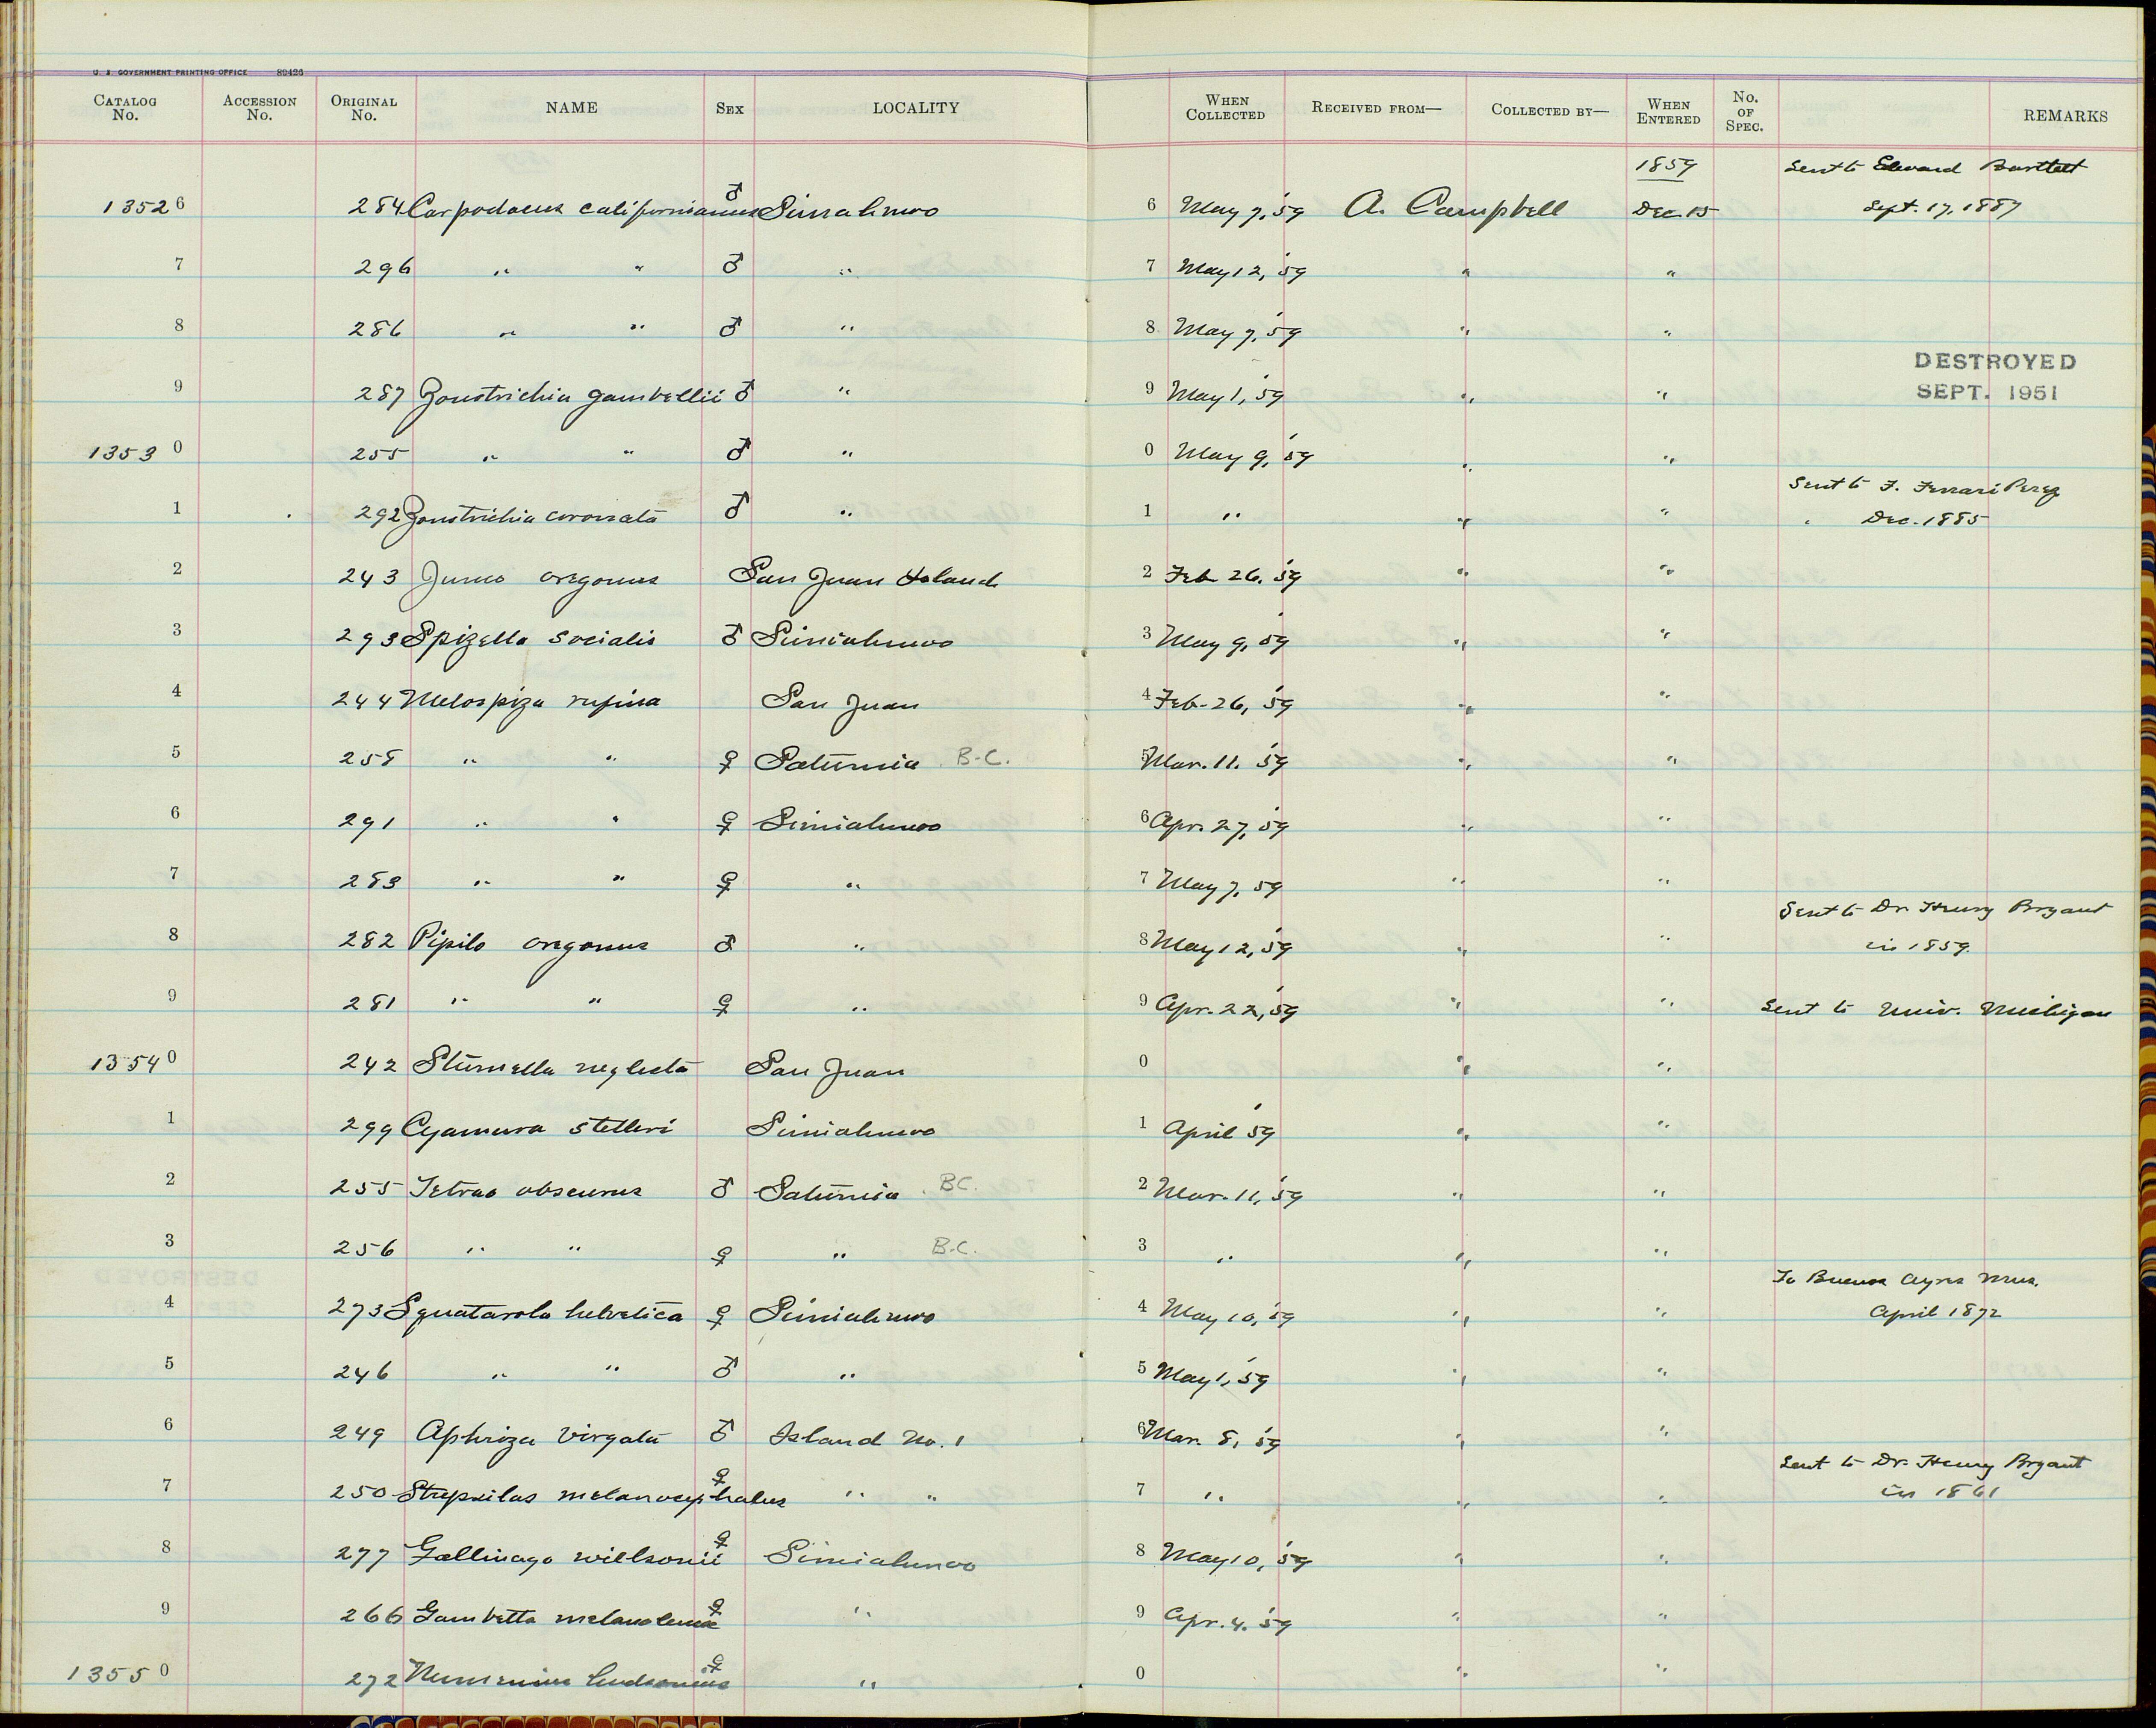 U. S. GOVERNMENT PRINTING OFFICE 89426
CATALOG No. ACCESSION No. ORIGINAL No. NAME SEX LOCALITY WHEN COLLECTED RECEIVED FROM— COLLECTED BY— WHEN ENTERED No. OF SPEC. REMARKS
1859 Sent to Edward Bartlett
13526 284 Carpodacus californianus ♂ Simiahmoo 6 May 7, '59 A. Campbell Dec. 15 Sept. 17, 1887
7 296 " " ♂ " 7 May 12, '59 " "
8 286 " " ♂ " 8 May 7, '59 " "
DESTROYED
9 287 Zonotrichia gambellii ♂ " 9 May 1, '59 " " SEPT. 1951
13530 255 " " ♂ " 0 May 9, '59 " "
Sent to F. Ferrari Perez
1 292 Zonotrichia coronata ♂ " 1 " " " Dec. 1885
2 243 Junco oregonus San Juan Island 2 Feb 26, '59 " "
3 293 Spizella socialis ♂ Simiahmoo 3 May 9, '59 " "
4 244 Melospiza rufina San Juan 4 Feb. 26, '59 " "
5 258 " " ♀ Saturnia B.C. 5 Mar. 11. '59 " "
6 291 " " ♀ Simiahmoo 6 Apr. 27, '59 " "
7 283 " " ♀ " 7 May 7, 59 " "
Sent to Dr. Henry Bryant
8 282 Pipilo oregonus ♂ " 8 May 12, '59 " " in 1859.
9 281 " " ♀ " 9 Apr. 22, '59 " " Sent to Univ. Michigan
13540 242 Sturnella neglecta San Juan 0 " "
1 299 Cyanura stelleri Simiahmoo 1 April '59 " "
2 255 Tetrao obscurus ♂ Saturnia BC. 2 Mar. 11, '59 " "
3 256 " " ♀ " B.C. 3 " " "
To Buenos Ayres Mus.
4 273 Squatarola helvetica ♀ Simiahmoo 4 May 10, '59 " " April 1872
5 246 " " ♂ " 5 May 1, '59 " "
6 249 Aphriza virgata ♂ Island No. 1 6 Mar. 8, '59 " "
Sent to Dr. Henry Bryant
7 250 Strepsilas melanocephalus ♀ " " 7 " " " in 1861
8 277 Gallinago wilsonii ♀ Simiahmoo 8 May 10, '59 " "
9 266 Gambetta melanoleuca ♀ " 9 Apr. 4. '59 " "
13550 272 Numenius hudsonicus ♀ " 0 " "